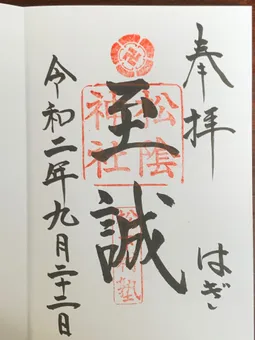 奉拝
はぎ
至誠
松陰神社
松下村塾
令和二年九月二十二日